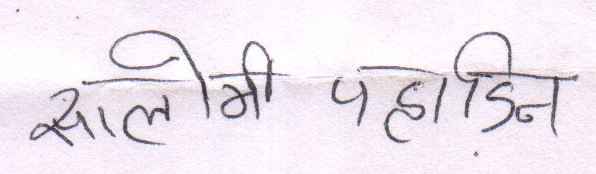 सालोमी पहाड़िन